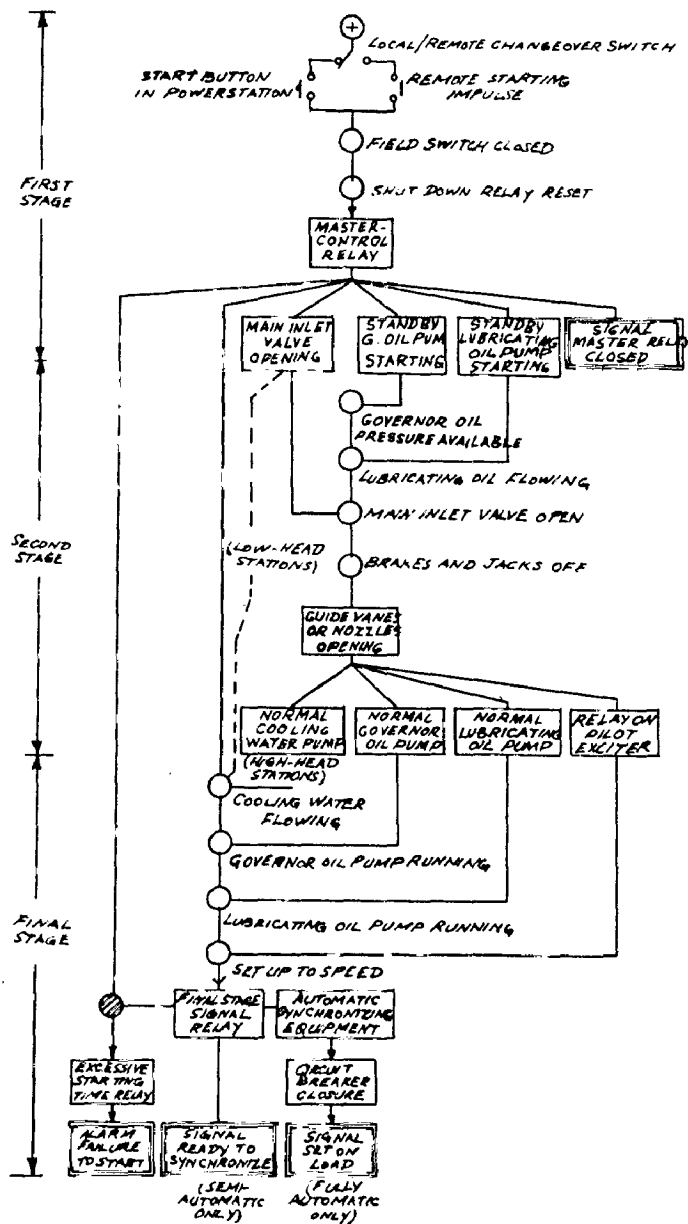 +
LOCAL/REMOTE CHANGEOVER SWITCH
START BUTTON
IN POWERSTATION
REMOTE STARTING
IMPULSE
FIELD SWITCH CLOSED
FIRST
STAGE
SHUT DOWN RELAY RESET
MASTER-
CONTROL
RELAY
MAIN INLET
VALVE
OPENING
STANDBY
G. OIL PUM
STARTING
STANDBY
LUBRICATING
OIL PUMP
STARTING
SIGNAL
MASTER RELO
CLOSED
GOVERNOR OIL
PRESSURE AVAILABLE
LUBRICATING OIL FLOWING
MAIN INLET VALVE OPEN
SECOND
STAGE
(LOW-HEAD
STATIONS)
BRAKES AND JACKS OFF
GUIDE VANES
OR NOZZLES
OPENING
NORMAL
COOLING
WATER PUMP
NORMAL
GOVERNOR
OIL PUMP
NORMAL
LUBRICATING
OIL PUMP
RELAY ON
PILOT
EXCITER
(HIGH-HEAD
STATIONS)
COOLING WATER
FLOWING
GOVERNOR OIL PUMP RUNNING
LUBRICATING OIL PUMP RUNNING
FINAL
STAGE
SET UP TO SPEED
FINAL STAGE
SIGNAL
RELAY
AUTOMATIC
SYNCHRONIZING
EQUIPMENT
EXCESSIVE
STARTING
TIME RELAY
CIRCUIT
BREAKER
CLOSURE
ALARM
FAILURE
TO START
SIGNAL
READY TO
SYNCHRONIZE
SIGNAL
SET ON
LOAD
(SEMI-
AUTOMATIC
ONLY)
(FULLY
AUTOMATIC
ONLY)